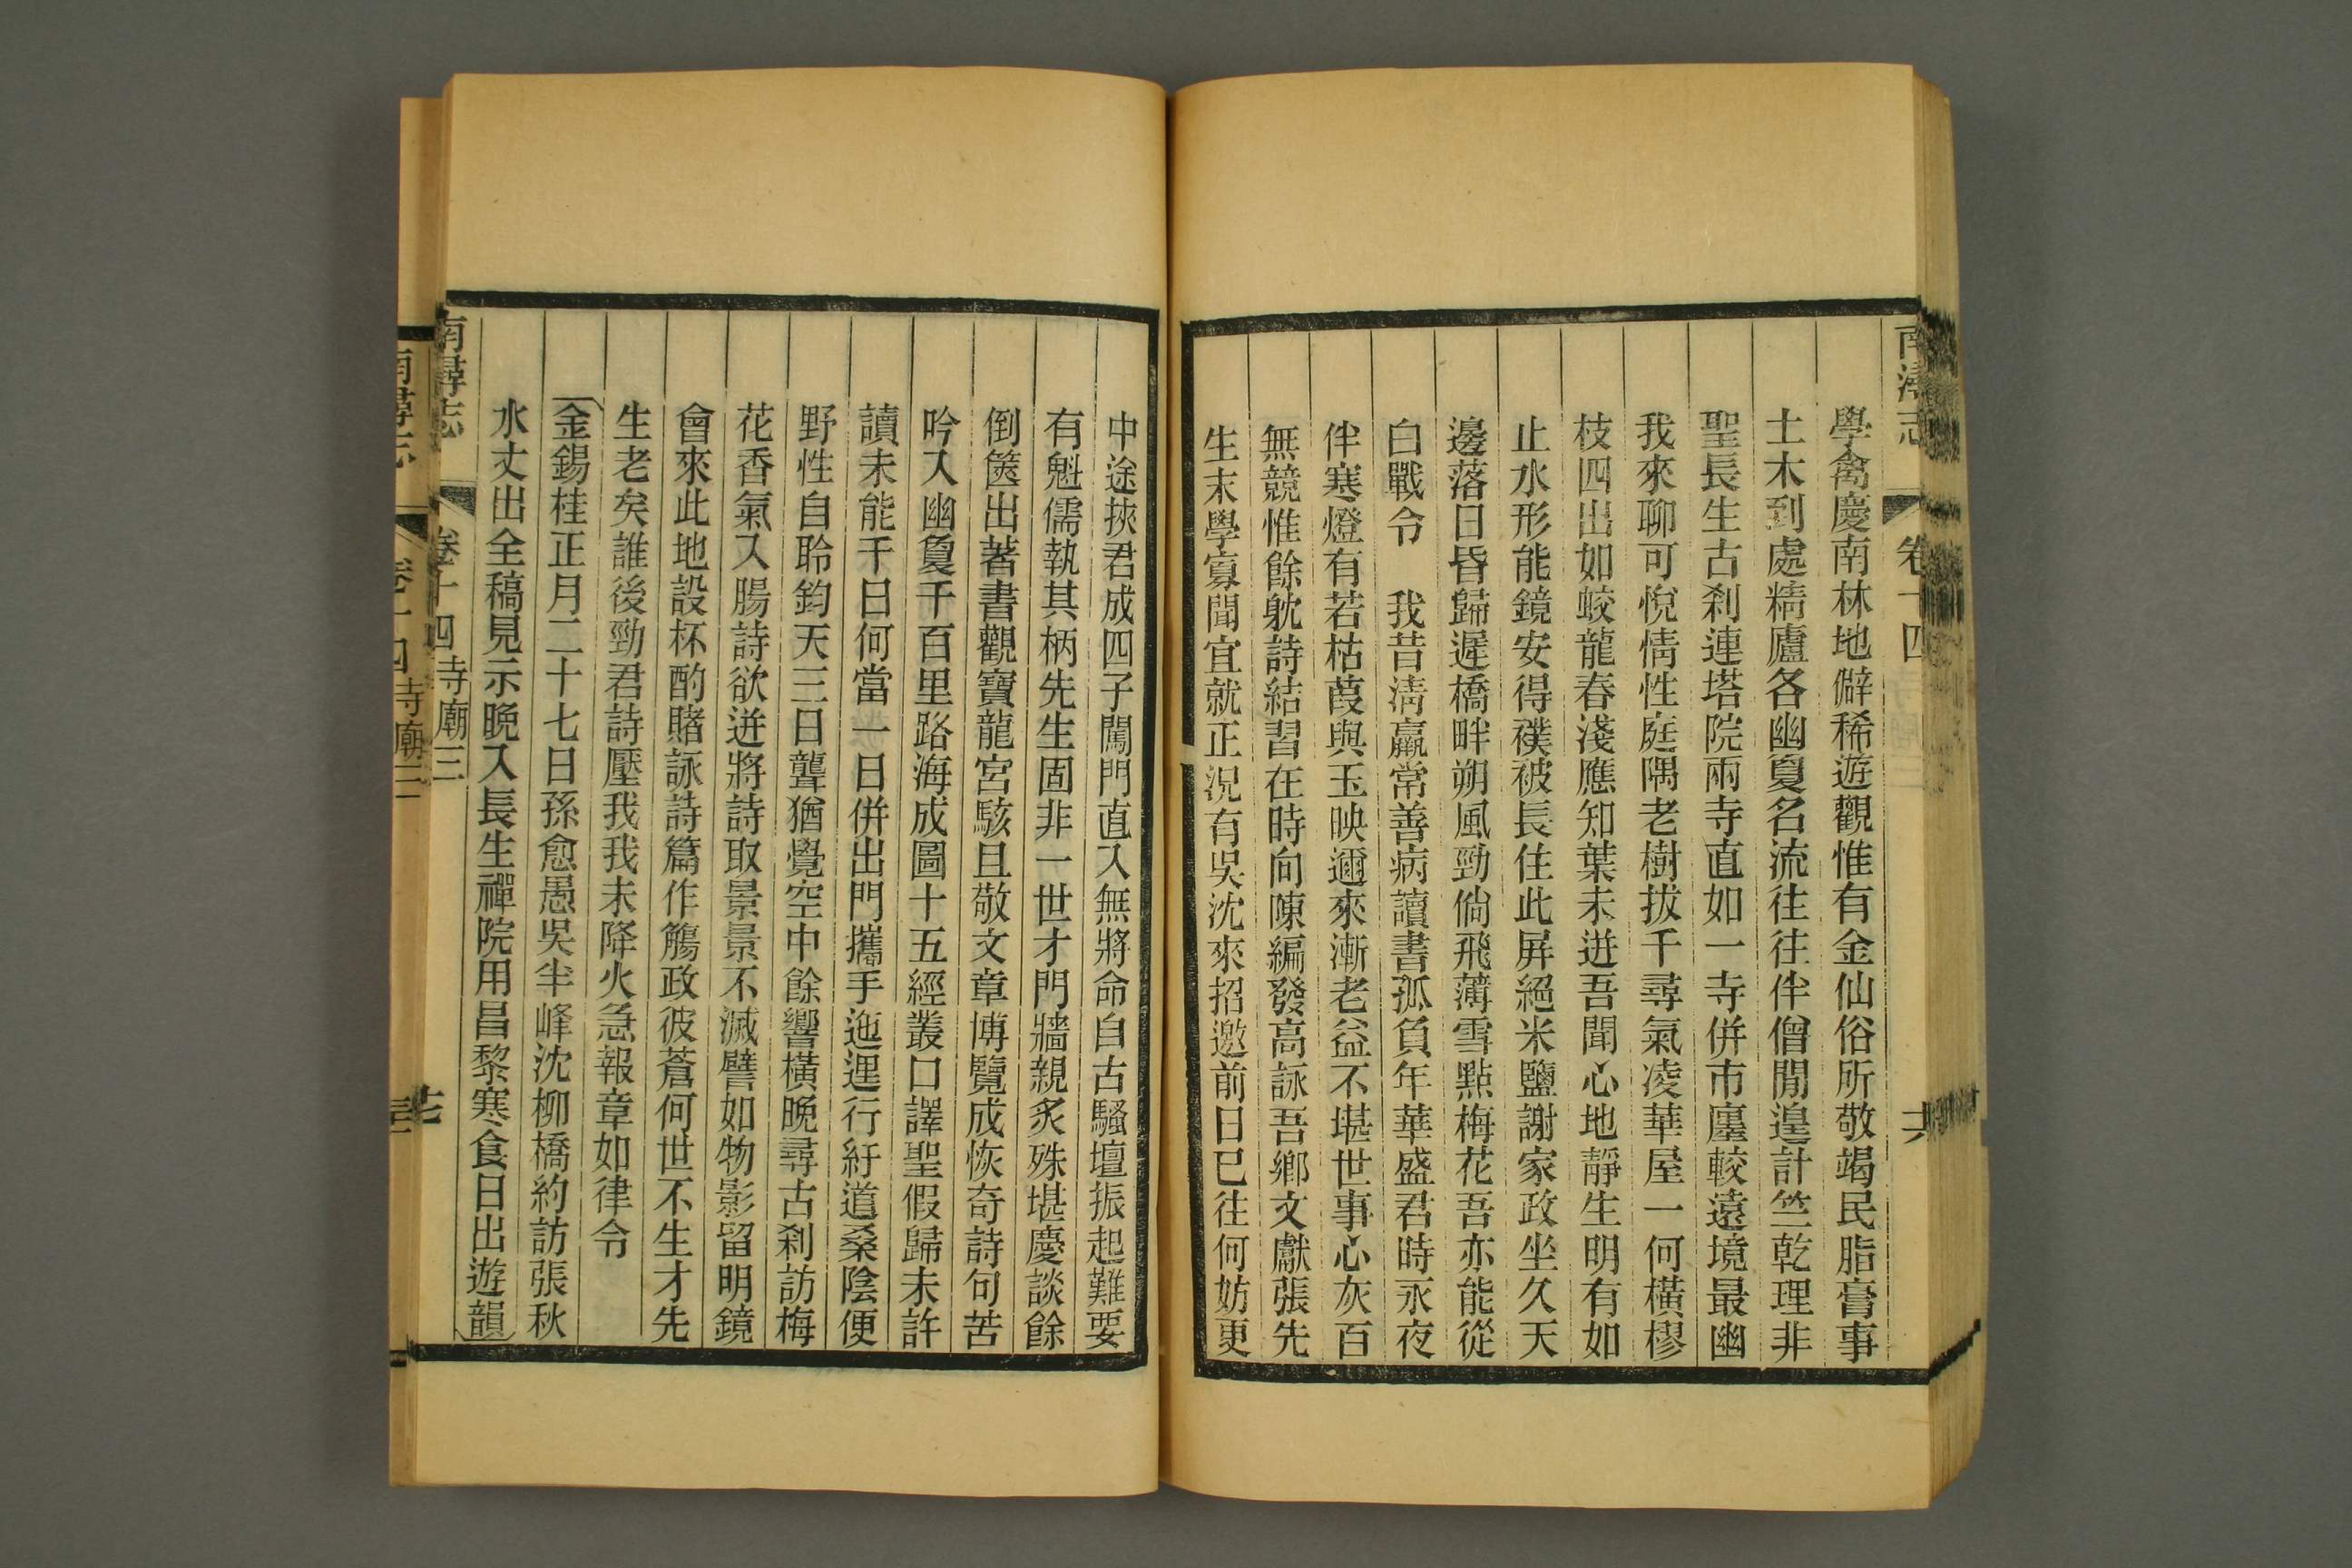 南潯志
卷十四
學禽慶南林地僻稀遊觀惟有金仙俗所敬竭民脂膏事
土木到處精廬各幽夐名流往往伴僧閒遑計竺乾理非
聖長生古剎連塔院兩寺直如一寺併市廛較遠境最幽
我來聊可悅情性庭隅老樹拔千尋氣凌華屋一何橫樛
枝四出如蛟龍春淺應知葉未迸吾聞心地靜生明有如
止水形能鏡安得襆被長住此屏絕米鹽謝家政坐久天
邊落日昏歸遲橋畔朔風勁倘飛薄雪點梅花吾亦能從
白戰令　我昔清羸常善病讀書孤負年華盛君時永夜
伴寒燈有若枯葭與玉映邇來漸老益不堪世事心灰百
無競惟餘躭詩結習在時向陳編發高詠吾鄉文獻張先
生末學寡聞宜就正況有吳沈來招邀前日已往何妨更
中途挾君成四子闖門直入無將命自古騷壇振起難要
有魁儒執其柄先生固非一世才門牆親炙殊堪慶談餘
倒篋出著書觀寶龍宮駭且敬文章博覽成恢奇詩句苦
吟入幽夐千百里路海成圖十五經叢口譯聖假歸未許
讀未能千日何當一日併出門攜手迤逦行紆道桑陰便
野性自聆鈞天三日聾猶覺空中餘響橫晚尋古剎訪梅
花香氣入腸詩欲迸將詩取景景不滅譬如物影留明鏡
會來此地設杯酌賭詠詩篇作觴政彼蒼何世不生才先
生老矣誰後勁君詩壓我我未降火急報章如律令
金錫桂正月二十七日孫愈愚吳半峰沈柳橋約訪張秋
水丈出全稿見示晚入長生禪院用昌黎寒食日出遊韻
南潯志
卷十四寺廟三
十七
南潯志
卷十四寺廟三